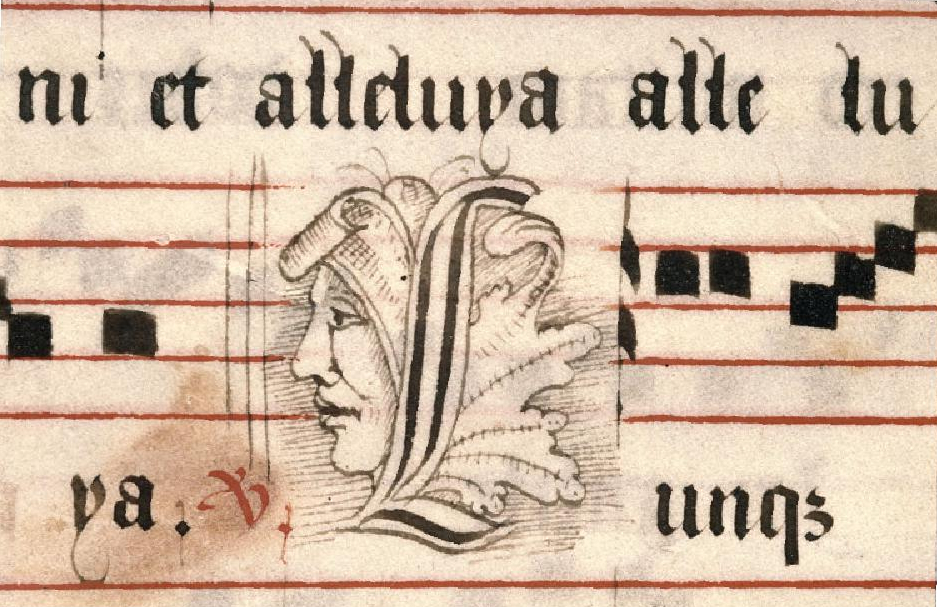 ni et alleluya alle lu
ya. V. unqꝫ